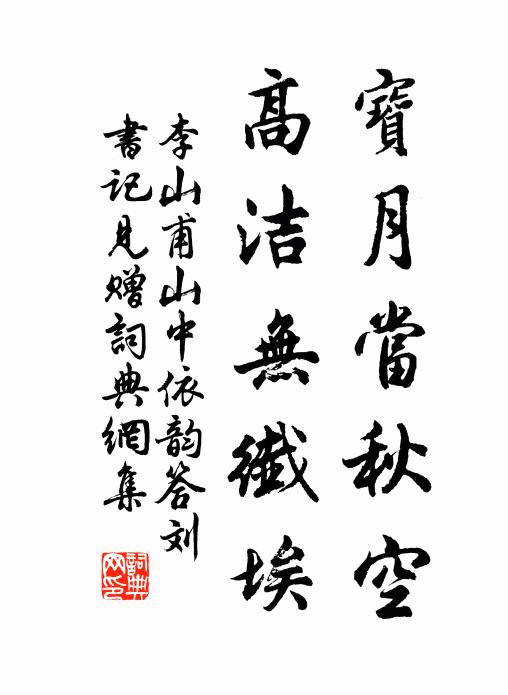 寶月當秋空
高洁無纖埃
李山甫山中依韵答刘
書记見贈詞典網集
詞典
网印